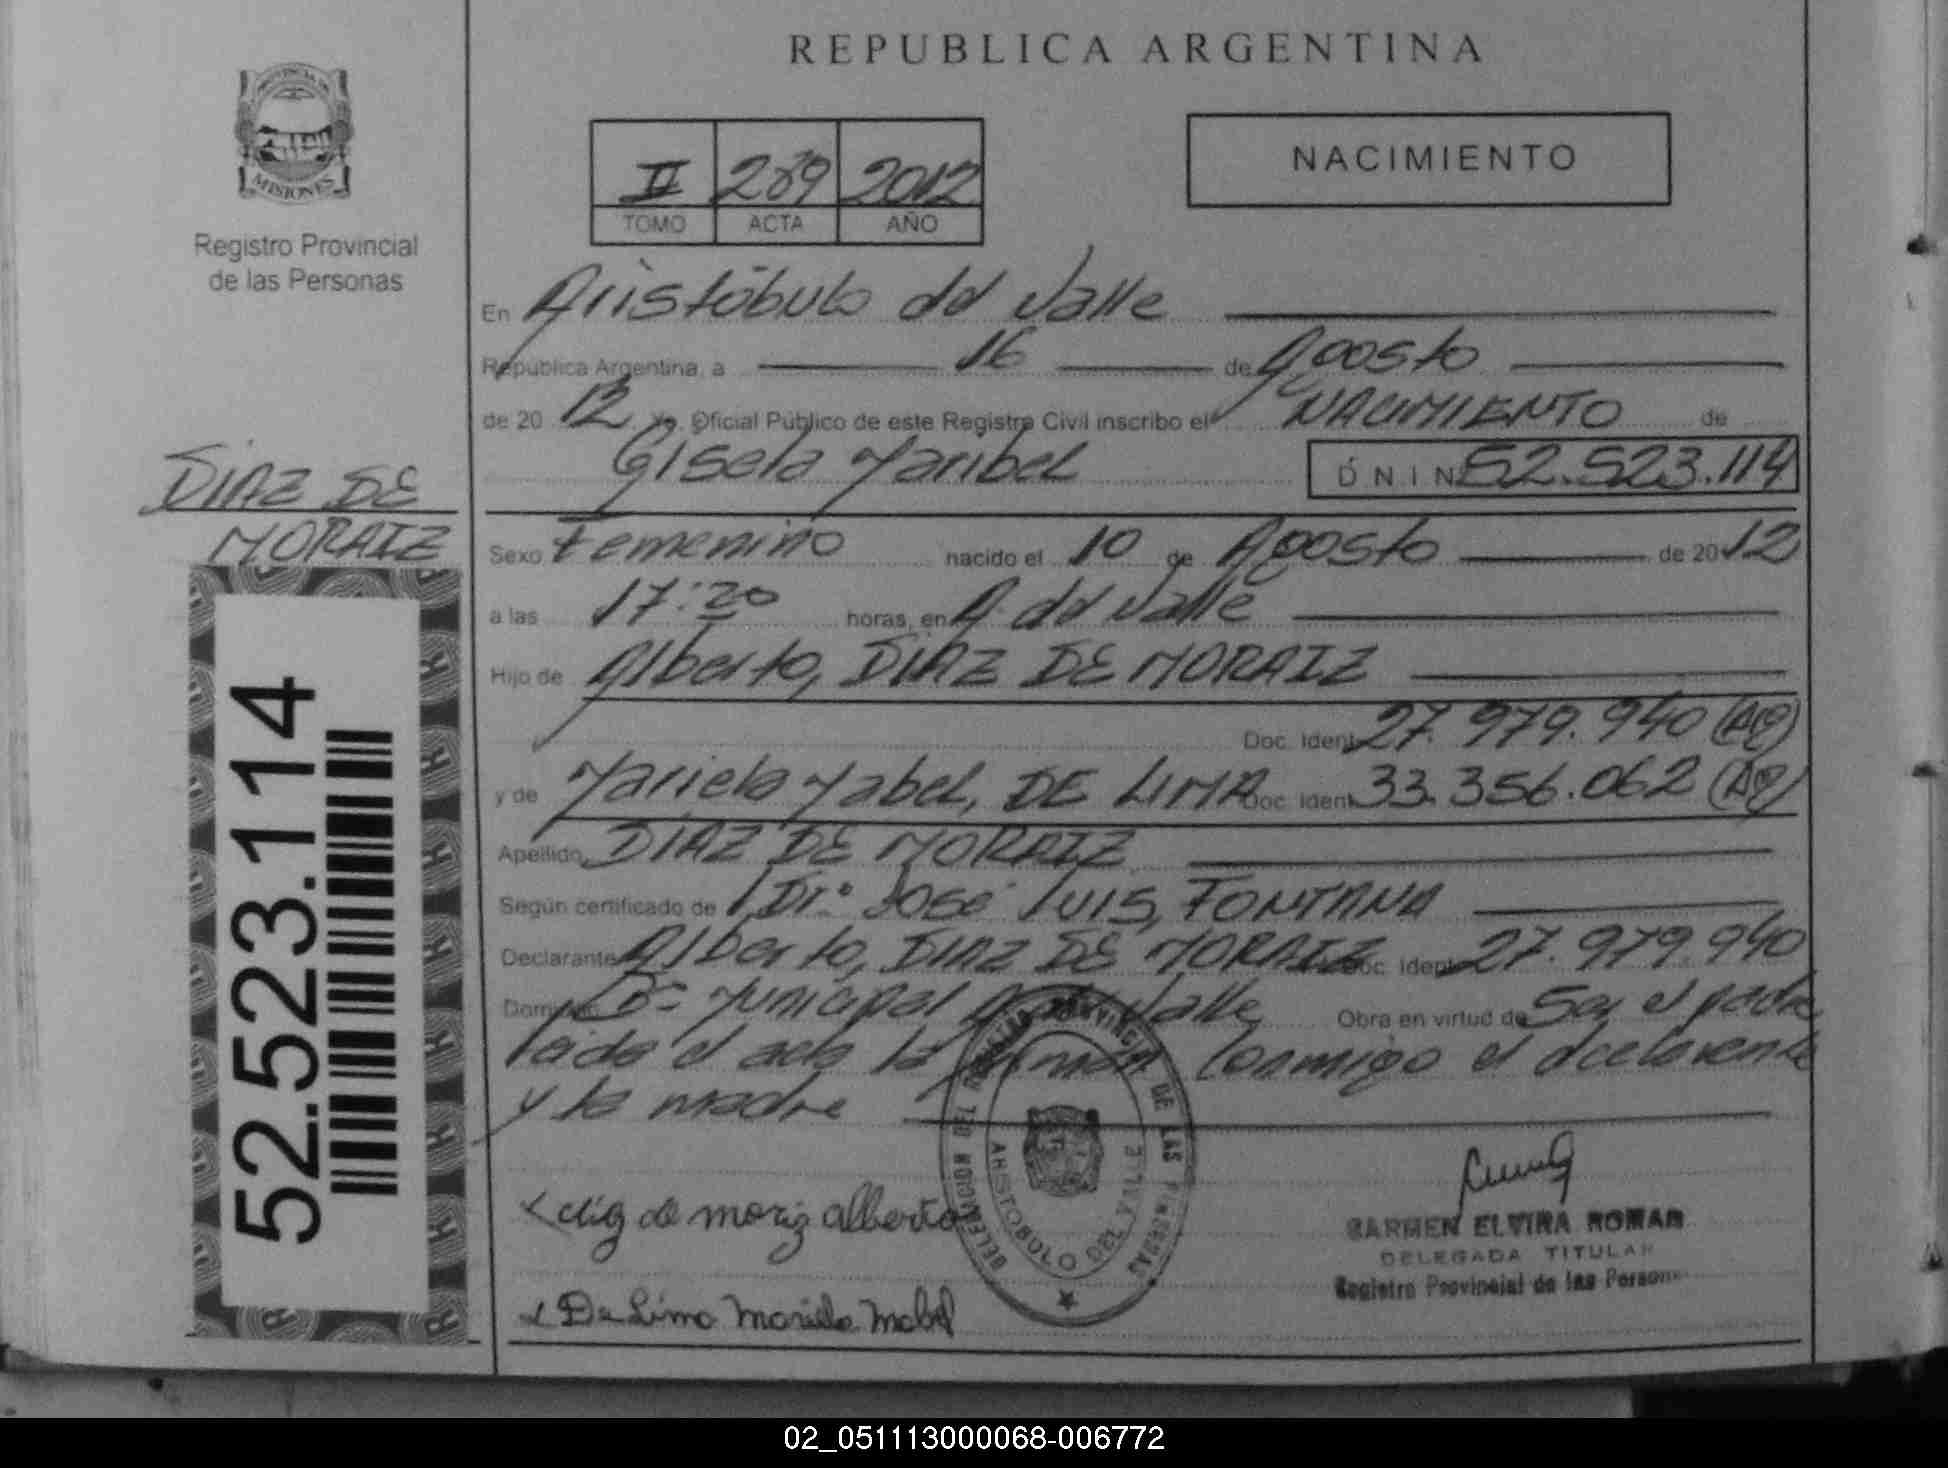 REPUBLICA ARGENTINA
PROVINCIA DE
MISIONES
Registro Provincial
de las Personas
II 289 2012
TOMO ACTA AÑO
NACIMIENTO
En Aristóbulo del Valle
República Argentina, a 16 de Agosto
de 20 12 Yo, Oficial Público de este Registro Civil inscribo el NACIMIENTO de
Gisela Maribel D N I Nº 52.523.114
DIAZ DE
MORAIZ
Sexo Femenino nacido el 10 de Agosto de 20 12
a las 17:20 horas, en A. del Valle
Hijo de Alberto, DIAZ DE MORAIZ
Doc. Ident. 27.979.940 (AR)
y de Mariela Mabel, DE LIMA Doc. Ident. 33.356.062 (AR)
Apellido DIAZ DE MORAIZ
Según certificado de Dr. José Luis, FONTANA
Declarante Alberto, DIAZ DE MORAIZ Doc. Ident. 27.979.940
Domicilio Bº Municipal A. del Valle Obra en virtud de Ser el padre
leída el acta la firman conmigo el declarante
y la madre
52.523.114
DELEGACION DEL REGISTRO PROVINCIAL DE LAS PERSONAS
ARISTOBULO DEL VALLE
x diaz de moriz alberto
CARMEN ELVIRA ROMAN
DELEGADA TITULAR
Registro Provincial de las Personas
x De Lima Mariela Mabel
02_051113000068-006772